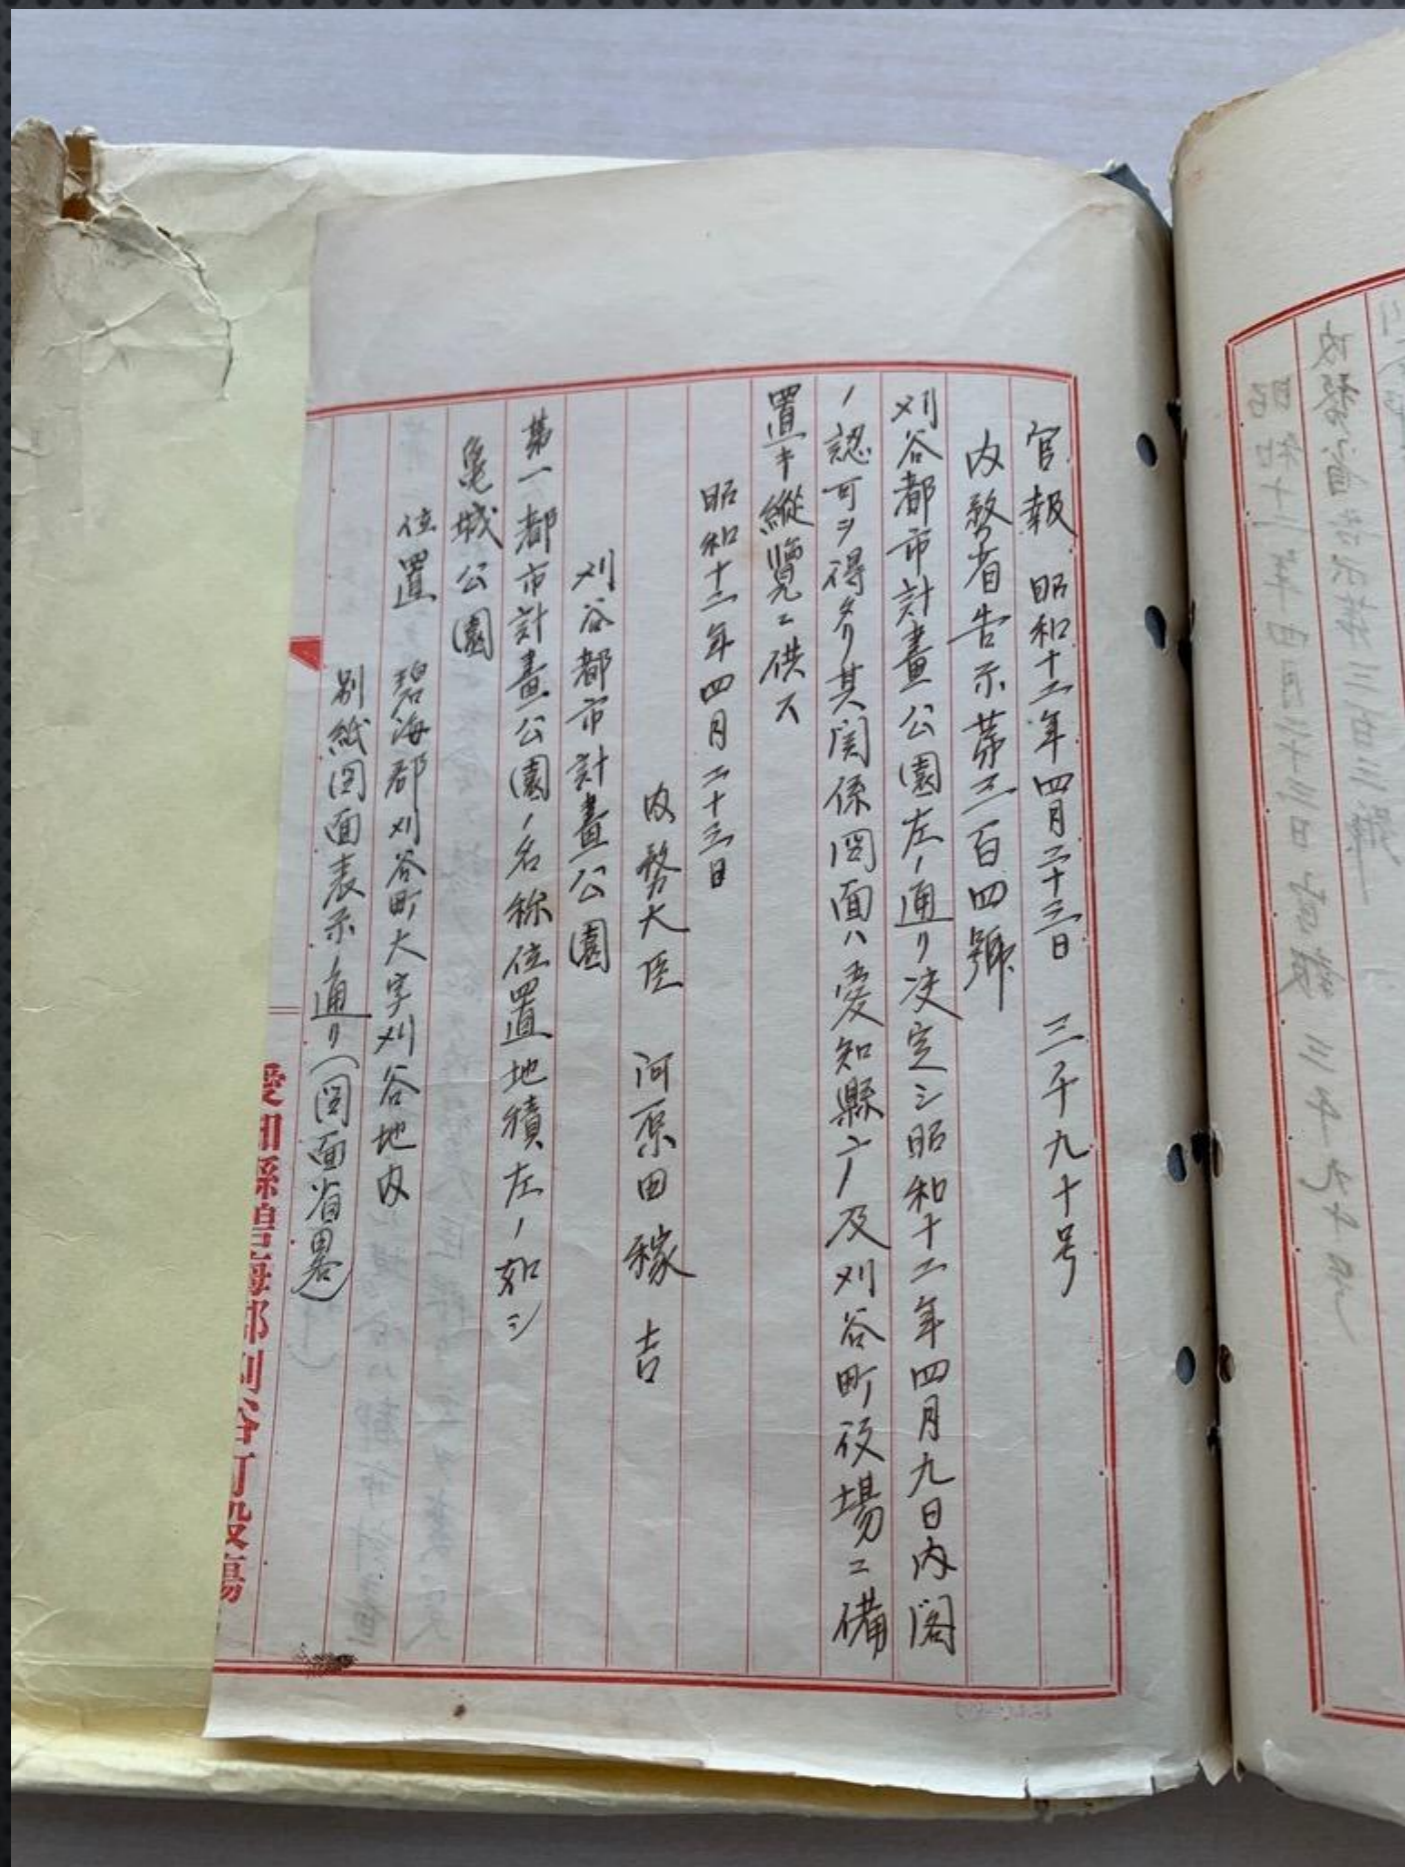 官報 昭和十二年四月二十三日 三千九十号
内務省告示第三百四號
刈谷都市計畫公園左ノ通リ決定シ昭和十二年四月九日内閣
ノ認可ヲ得タリ其関係図面ハ愛知縣庁及刈谷町役場ニ備
置キ縦覽ニ供ス
昭和十二年四月二十三日
内務大臣 河原田稼吉
刈谷都市計畫公園
第一 都市計畫公園ノ名称位置地積左ノ如シ
亀城公園
位置 碧海郡刈谷町大字刈谷地内
別紙図面表示ノ通リ(図面省畧)
愛知縣碧海郡刈谷町役場